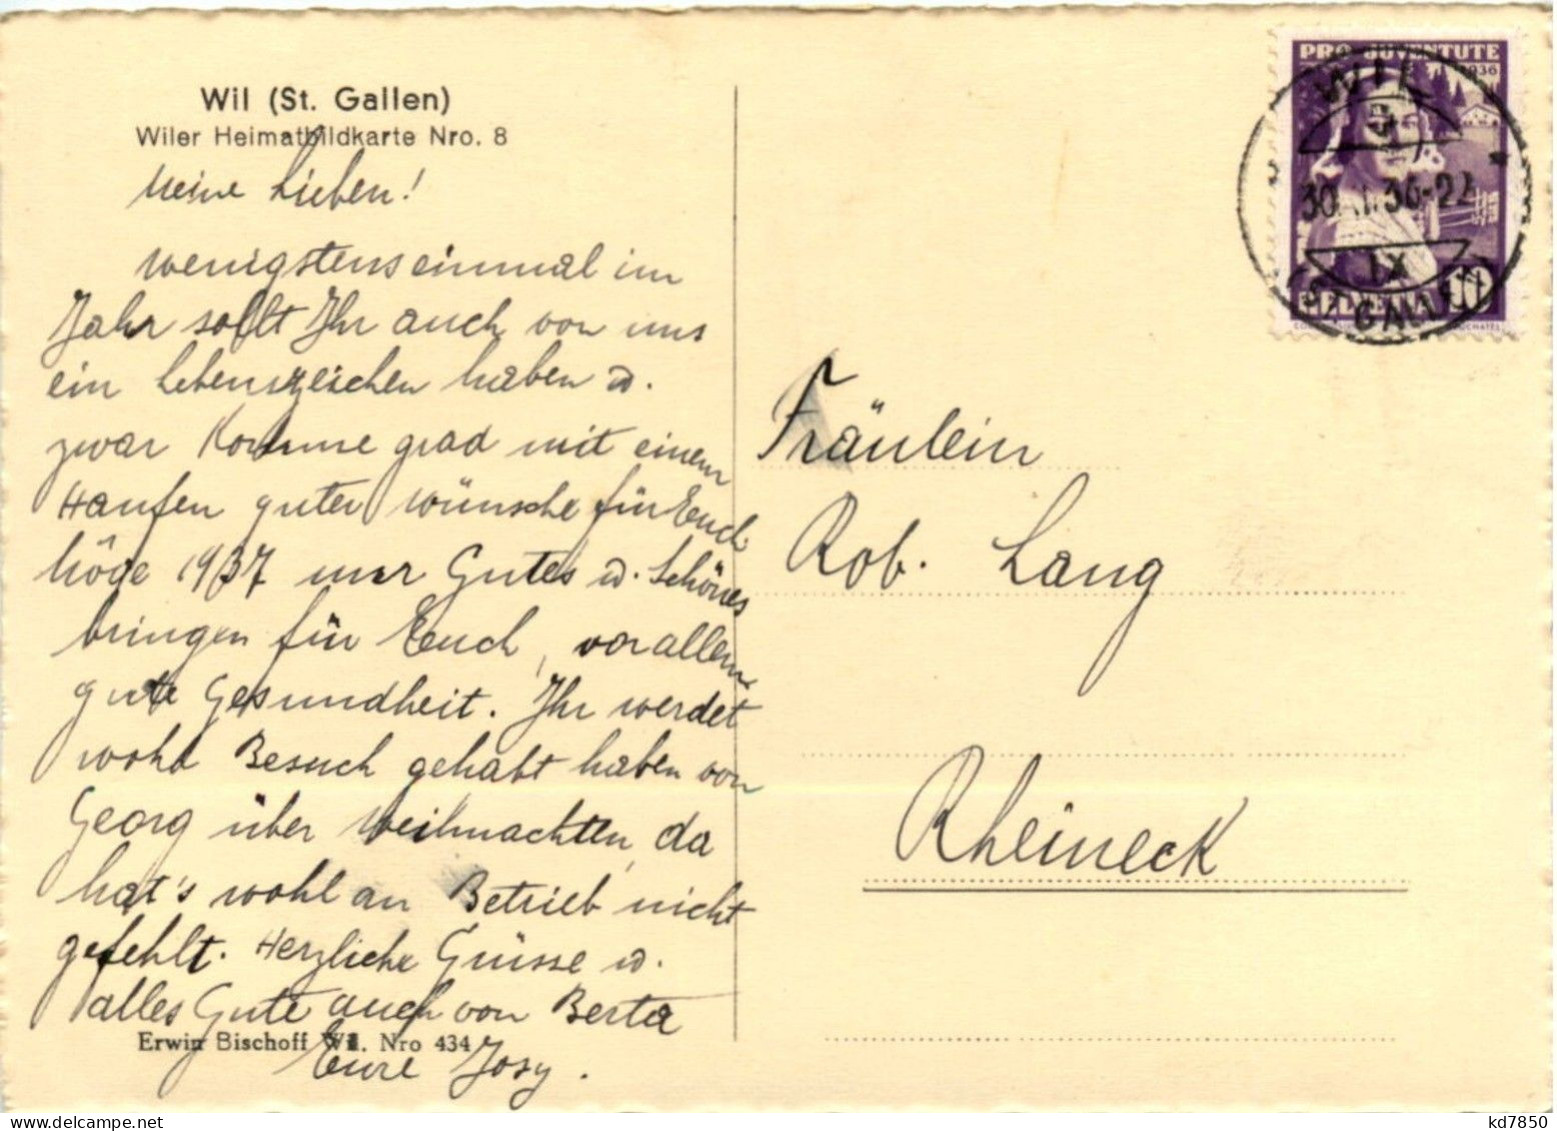 Wil (St. Gallen)
Wiler Heimatbildkarte Nro. 8
Meine Lieben!
Wenigstens einmal im
Jahr sollt Ihr auch von uns
ein Lebenszeichen haben u.
zwar komme grad mit einem
Haufen guter Wünsche für Euch.
Möge 1937 nur Gutes u. Schönes
bringen für Euch, vor allem
gute Gesundheit. Ihr werdet
wohl Besuch gehabt haben von
Georg über Weihnachten, da
hat's wohl an Betrieb nicht
gefehlt. Herzliche Grüsse u.
alles Gute auch von Berta
Eure Josy.
Erwin Bischoff Wil. Nro 434
PRO JUVENTUTE
1936
WIL
30.XII.36-22
IX
(ST. GALLEN)
HELVETIA 10
Fräulein
Rob. Lang
Rheineck
kd7850